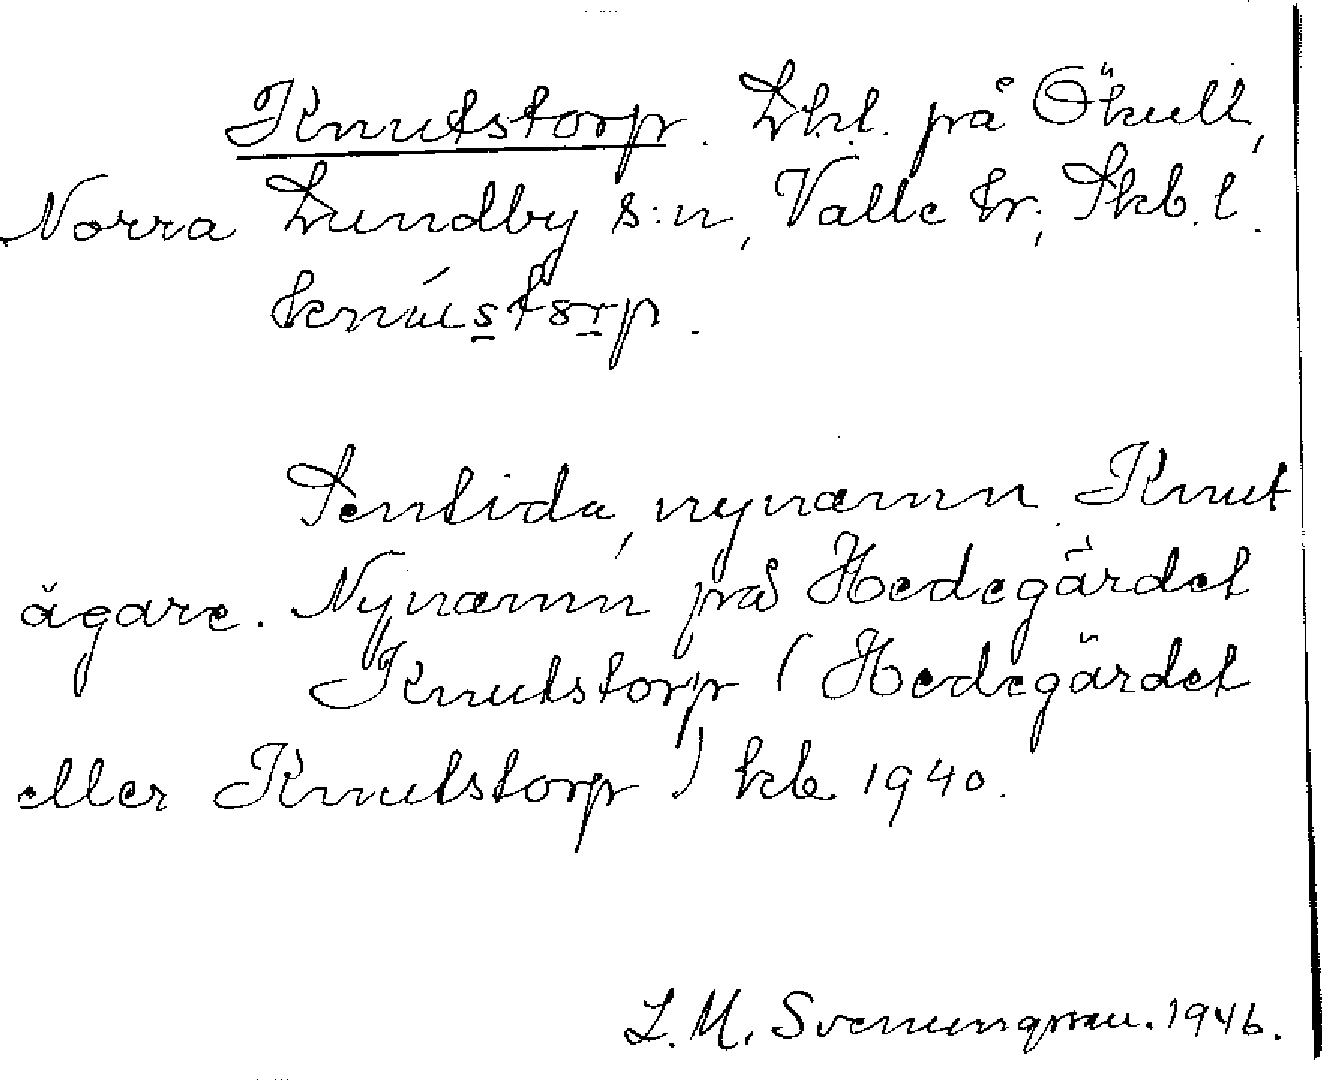 Knutstorp. Lht. på Ökull,
Norra Lundby s:n, Valle hr; Skb. l.
knústorp.
Sentida, nynamn. Knut
ägare. Nynamn på Hedegärdet
Knutstorp (Hedegärdet
eller Knutstorp) kb 1940.
L. M. Svenungsson. 1946.